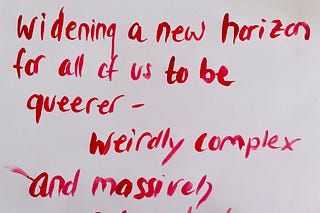 widening a new horizon
for all of us to be
queerer -
weirdly complex
and massively